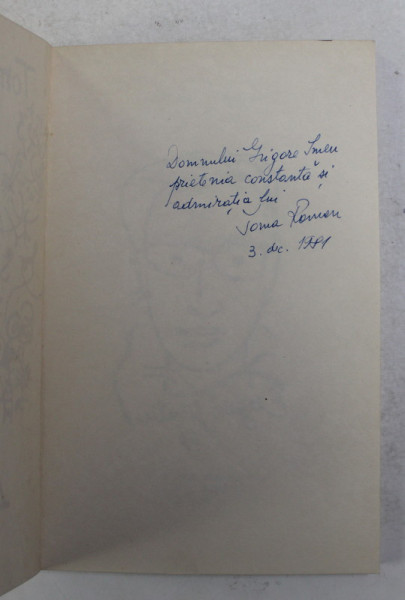 Domnului Grigore Smeu
prietenia constantă și
admirația lui
Toma Roman
3. dec. 1981
Tom